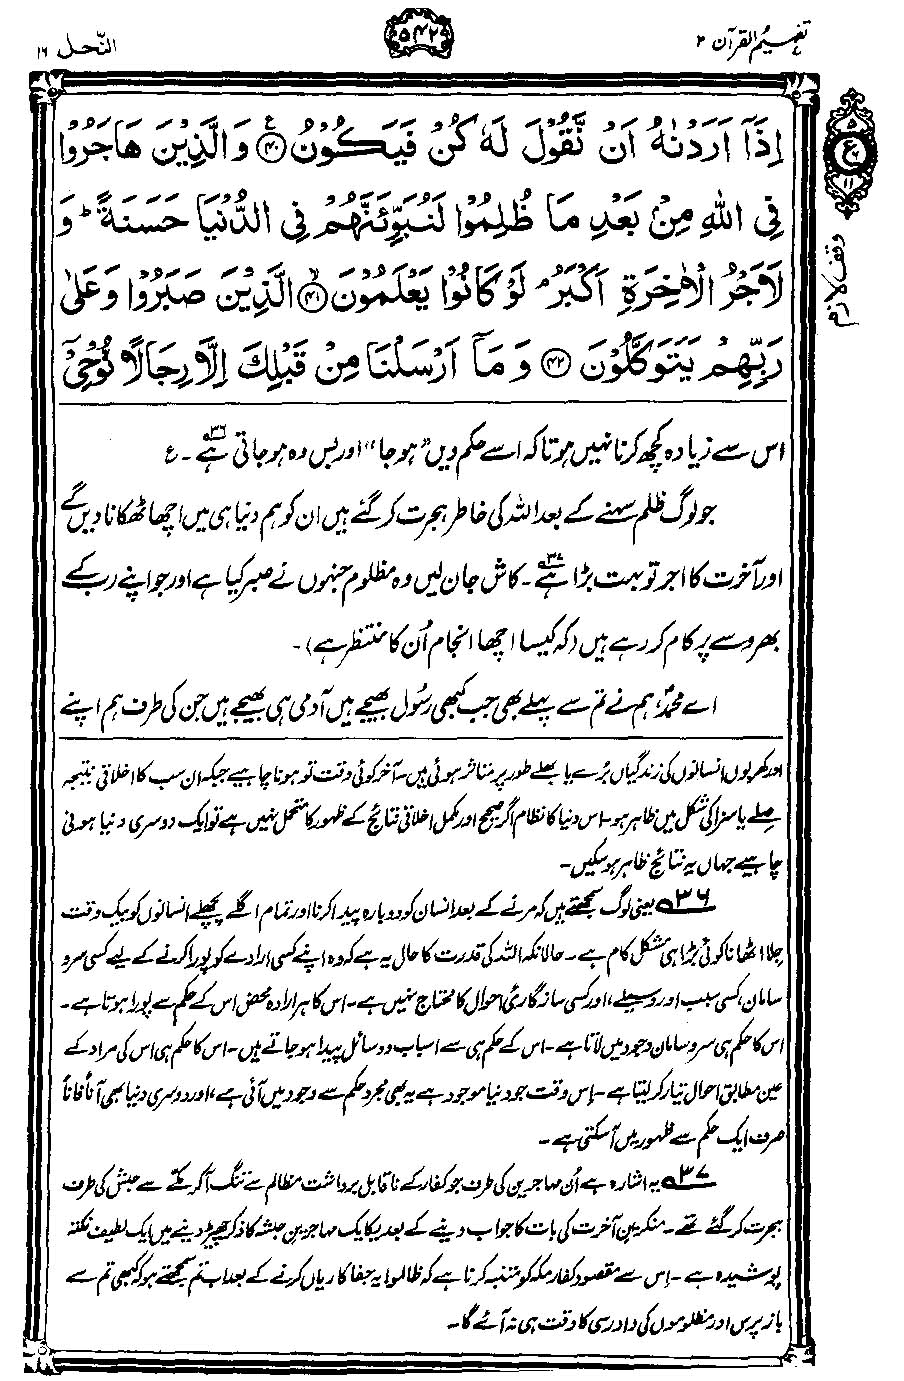 تفہیم القرآن ۲
۵۴۲
النّحل ۱۶
اِذَآ اَرَدْنٰهُ اَنْ نَّقُوْلَ لَهٗ كُنْ فَيَكُوْنُ ﴿۴۰﴾ ع وَالَّذِيْنَ هَاجَرُوْا
فِى اللّٰهِ مِنْۢ بَعْدِ مَا ظُلِمُوْا لَنُبَوِّئَنَّهُمْ فِى الدُّنْيَا حَسَنَةً ؕ وَ
لَاَجْرُ الْاٰخِرَةِ اَكْبَرُ ۘ لَوْ كَانُوْا يَعْلَمُوْنَ ﴿۴۱﴾ۙ الَّذِيْنَ صَبَرُوْا وَعَلٰى
رَبِّهِمْ يَتَوَكَّلُوْنَ ﴿۴۲﴾ وَمَآ اَرْسَلْنَا مِنْ قَبْلِكَ اِلَّا رِجَالًا نُّوْحِىْٓ
۵
ع
۱۱
وقف لازم
اس سے زیادہ کچھ کرنا نہیں ہوتا کہ اسے حکم دیں ”ہو جا“ اور بس وہ ہو جاتی ہے۳۶۔ ع
جو لوگ ظلم سہنے کے بعد اللہ کی خاطر ہجرت کر گئے ہیں ان کو ہم دنیا ہی میں اچھا ٹھکانا دیں گے
اور آخرت کا اجر تو بہت بڑا ہے۳۷۔ کاش جان لیں وہ مظلوم جنہوں نے صبر کیا ہے اور جو اپنے رب کے
بھروسے پر کام کر رہے ہیں (کہ کیسا اچھا انجام اُن کا منتظر ہے)۔
اے محمدؐ، ہم نے تم سے پہلے بھی جب کبھی رسُول بھیجے ہیں آدمی ہی بھیجے ہیں جن کی طرف ہم اپنے
اور کھربوں انسانوں کی زندگیاں بُرے یا بھلے طور پر متاثر ہوئی ہیں۔ آخر کوئی وقت تو ہونا چاہیے جبکہ ان سب کا اخلاقی نتیجہ
صلے یا سزا کی شکل میں ظاہر ہو۔ اس دنیا کا نظام اگر صحیح اور مکمل اخلاقی نتائج کے ظہور کا متحمل نہیں ہے تو ایک دوسری دنیا ہونی
چاہیے جہاں یہ نتائج ظاہر ہو سکیں۔
۳۶ یعنی لوگ سمجھتے ہیں کہ مرنے کے بعد انسان کو دوبارہ پیدا کرنا اور تمام اگلے پچھلے انسانوں کو بیک وقت
جلا اٹھانا کوئی بڑا ہی مشکل کام ہے۔ حالانکہ اللہ کی قدرت کا حال یہ ہے کہ وہ اپنے کسی ارادے کو پورا کرنے کے لیے کسی سرو
سامان، کسی سبب اور وسیلے، اور کسی سازگاریٔ احوال کا محتاج نہیں ہے۔ اس کا ہر ارادہ محض اس کے حکم سے پورا ہوتا ہے۔
اس کا حکم ہی سروسامان وجود میں لاتا ہے۔ اس کے حکم ہی سے اسباب و وسائل پیدا ہو جاتے ہیں۔ اس کا حکم ہی اس کی مراد کے
عین مطابق احوال تیار کر لیتا ہے۔ اِس وقت جو دنیا موجود ہے یہ بھی مجرد حکم سے وجود میں آئی ہے، اور دوسری دنیا بھی آناً فاناً
صرف ایک حکم سے ظہور میں آ سکتی ہے۔
۳۷ یہ اشارہ ہے اُن مہاجرین کی طرف جو کفار کے ناقابل برداشت مظالم سے تنگ آکر مکے سے حبش کی طرف
ہجرت کر گئے تھے۔ منکرین آخرت کی بات کا جواب دینے کے بعد یکایک مہاجرین حبشہ کا ذکر چھیڑ دینے میں ایک لطیف نکتہ
پوشیدہ ہے۔ اِس سے مقصود کفار مکہ کو متنبہ کرنا ہے کہ ظالمو! یہ جفا کاریاں کرنے کے بعد اب تم سمجھتے ہو کہ کبھی تم سے
باز پرس اور مظلوموں کی دادرسی کا وقت ہی نہ آئے گا۔